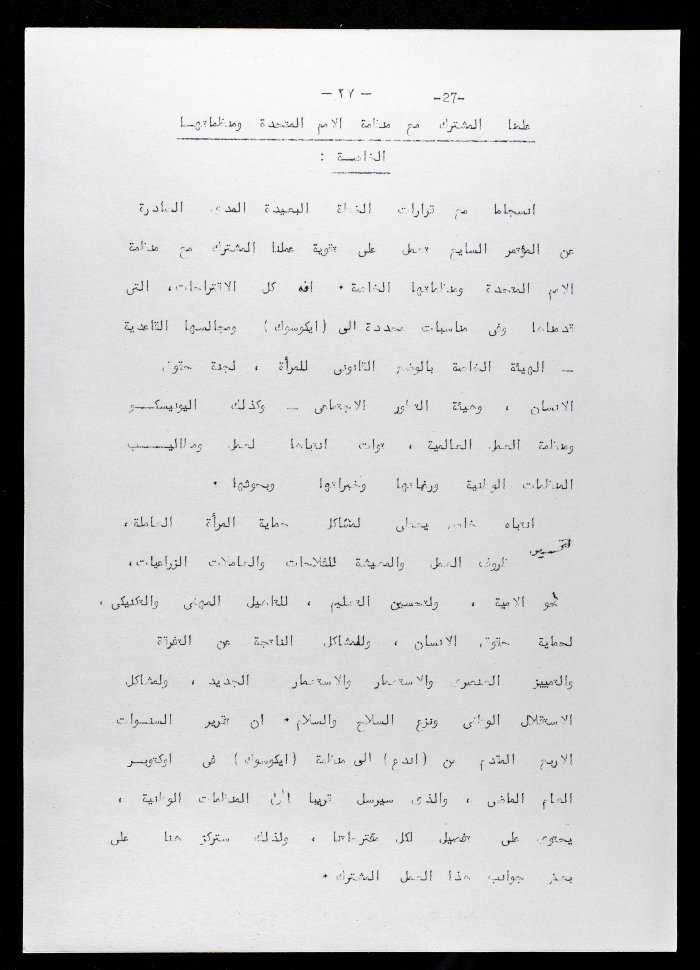 - ٢٧ - -27-
عملنا المشترك مع منظمة الامم المتحدة ومنظماتهـا
الخاصـة :
انسجاما مع قرارات الخطة البعيدة المدى الصادرة
عن المؤتمر السابع نعمل على تقوية عملنا المشترك مع منظمة
الامم المتحدة ومنظماتها الخاصة . ان كل الاقتراحات، التى
قدمناها وفى مناسبات محددة الى (ايكوسوك) ومجالسها القاعدية
ـ الهيئة الخاصة بالوضع القانونى للمرأة ، لجنة حقوق
الانسان ، وهيئة التطور الاجتماعى ـ وكذلك اليونيسكـــو
ومنظمة العمل العالمية ، انتباها لعمل ومطاليــــب
المنظمات الوطنية ورغباتها وخبراتها وبحوثها .
انتباه خاص يعطى لمشاكل حماية المرأة العاملة ،
لتحسين ظروف العمل والمعيشة للفلاحات والعاملات الزراعيات،
لمحو الامية ، ولتحسين التعليم ، للتاهيل المهنى والتكنيكى ،
لحماية حقوق الانسان ، وللمشاكل الناتجة عن التفرقة
والتمييز العنصرى والاستعمار والاستعمار الجديد ، ولمشاكل
الاستقلال الوطنى ونزع السلاح والسلام . ان تقرير السنـوات
الاربع المقدم من (اندع) الى منظمة (ايكوسوك) فى اوكتوبـر
العام الماضى ، والذى سيرسل قريبا الى المنظمات الوطنية ،
يحتوى على تفصيل لكل مقترحاتنا ، ولذلك سنركز هنا على
بعض جوانب هذا العمل المشترك .